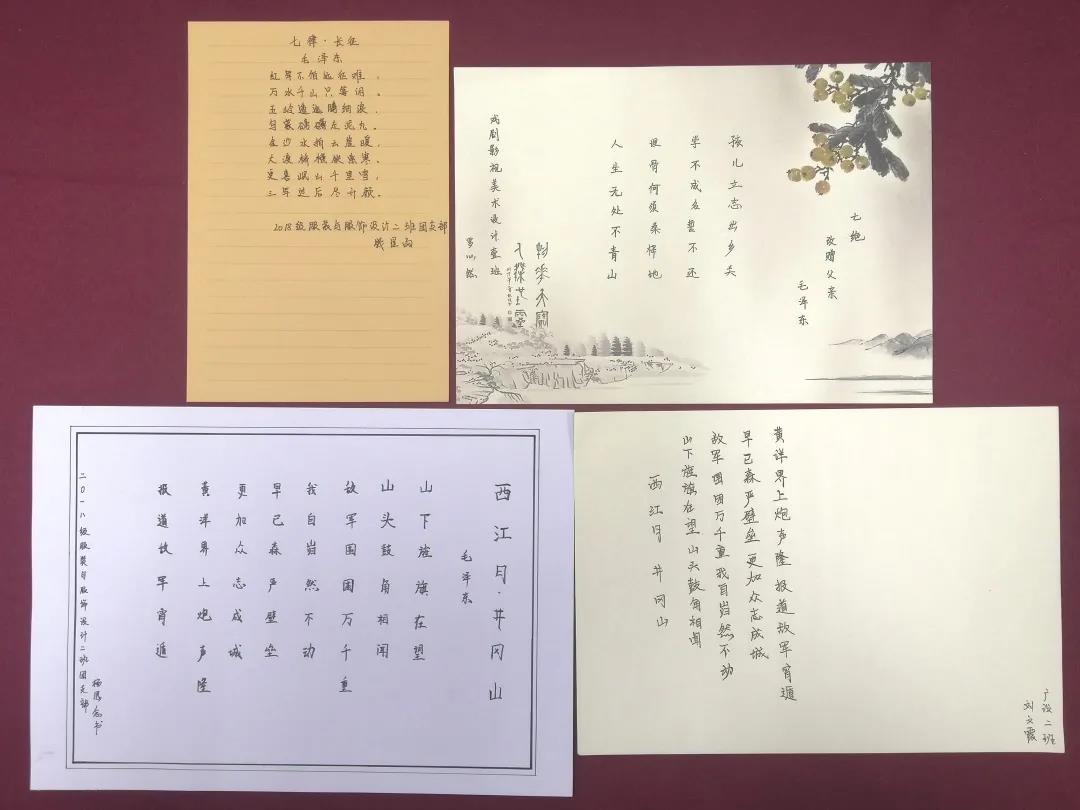 七律·长征
毛泽东
红军不怕远征难，
万水千山只等闲。
五岭逶迤腾细浪，
乌蒙磅礴走泥丸。
金沙水拍云崖暖，
大渡桥横铁索寒。
更喜岷山千里雪，
三军过后尽开颜。
2018级服装与服饰设计二班团支部
七绝
改赠父亲
毛泽东
孩儿立志出乡关
学不成名誓不还
埋骨何须桑梓地
人生无处不青山
戏剧影视美术设计壹班
西江月·井冈山
毛泽东
山下旌旗在望
山头鼓角相闻
敌军围困万千重
我自岿然不动
早已森严壁垒
更加众志成城
黄洋界上炮声隆
报道敌军宵遁
二〇一八级服装与服饰设计二班团支部
西江月 井冈山
山下旌旗在望 山头鼓角相闻
敌军围困万千重 我自岿然不动
早已森严壁垒 更加众志成城
黄洋界上炮声隆 报道敌军宵遁
广设二班
刘文霞